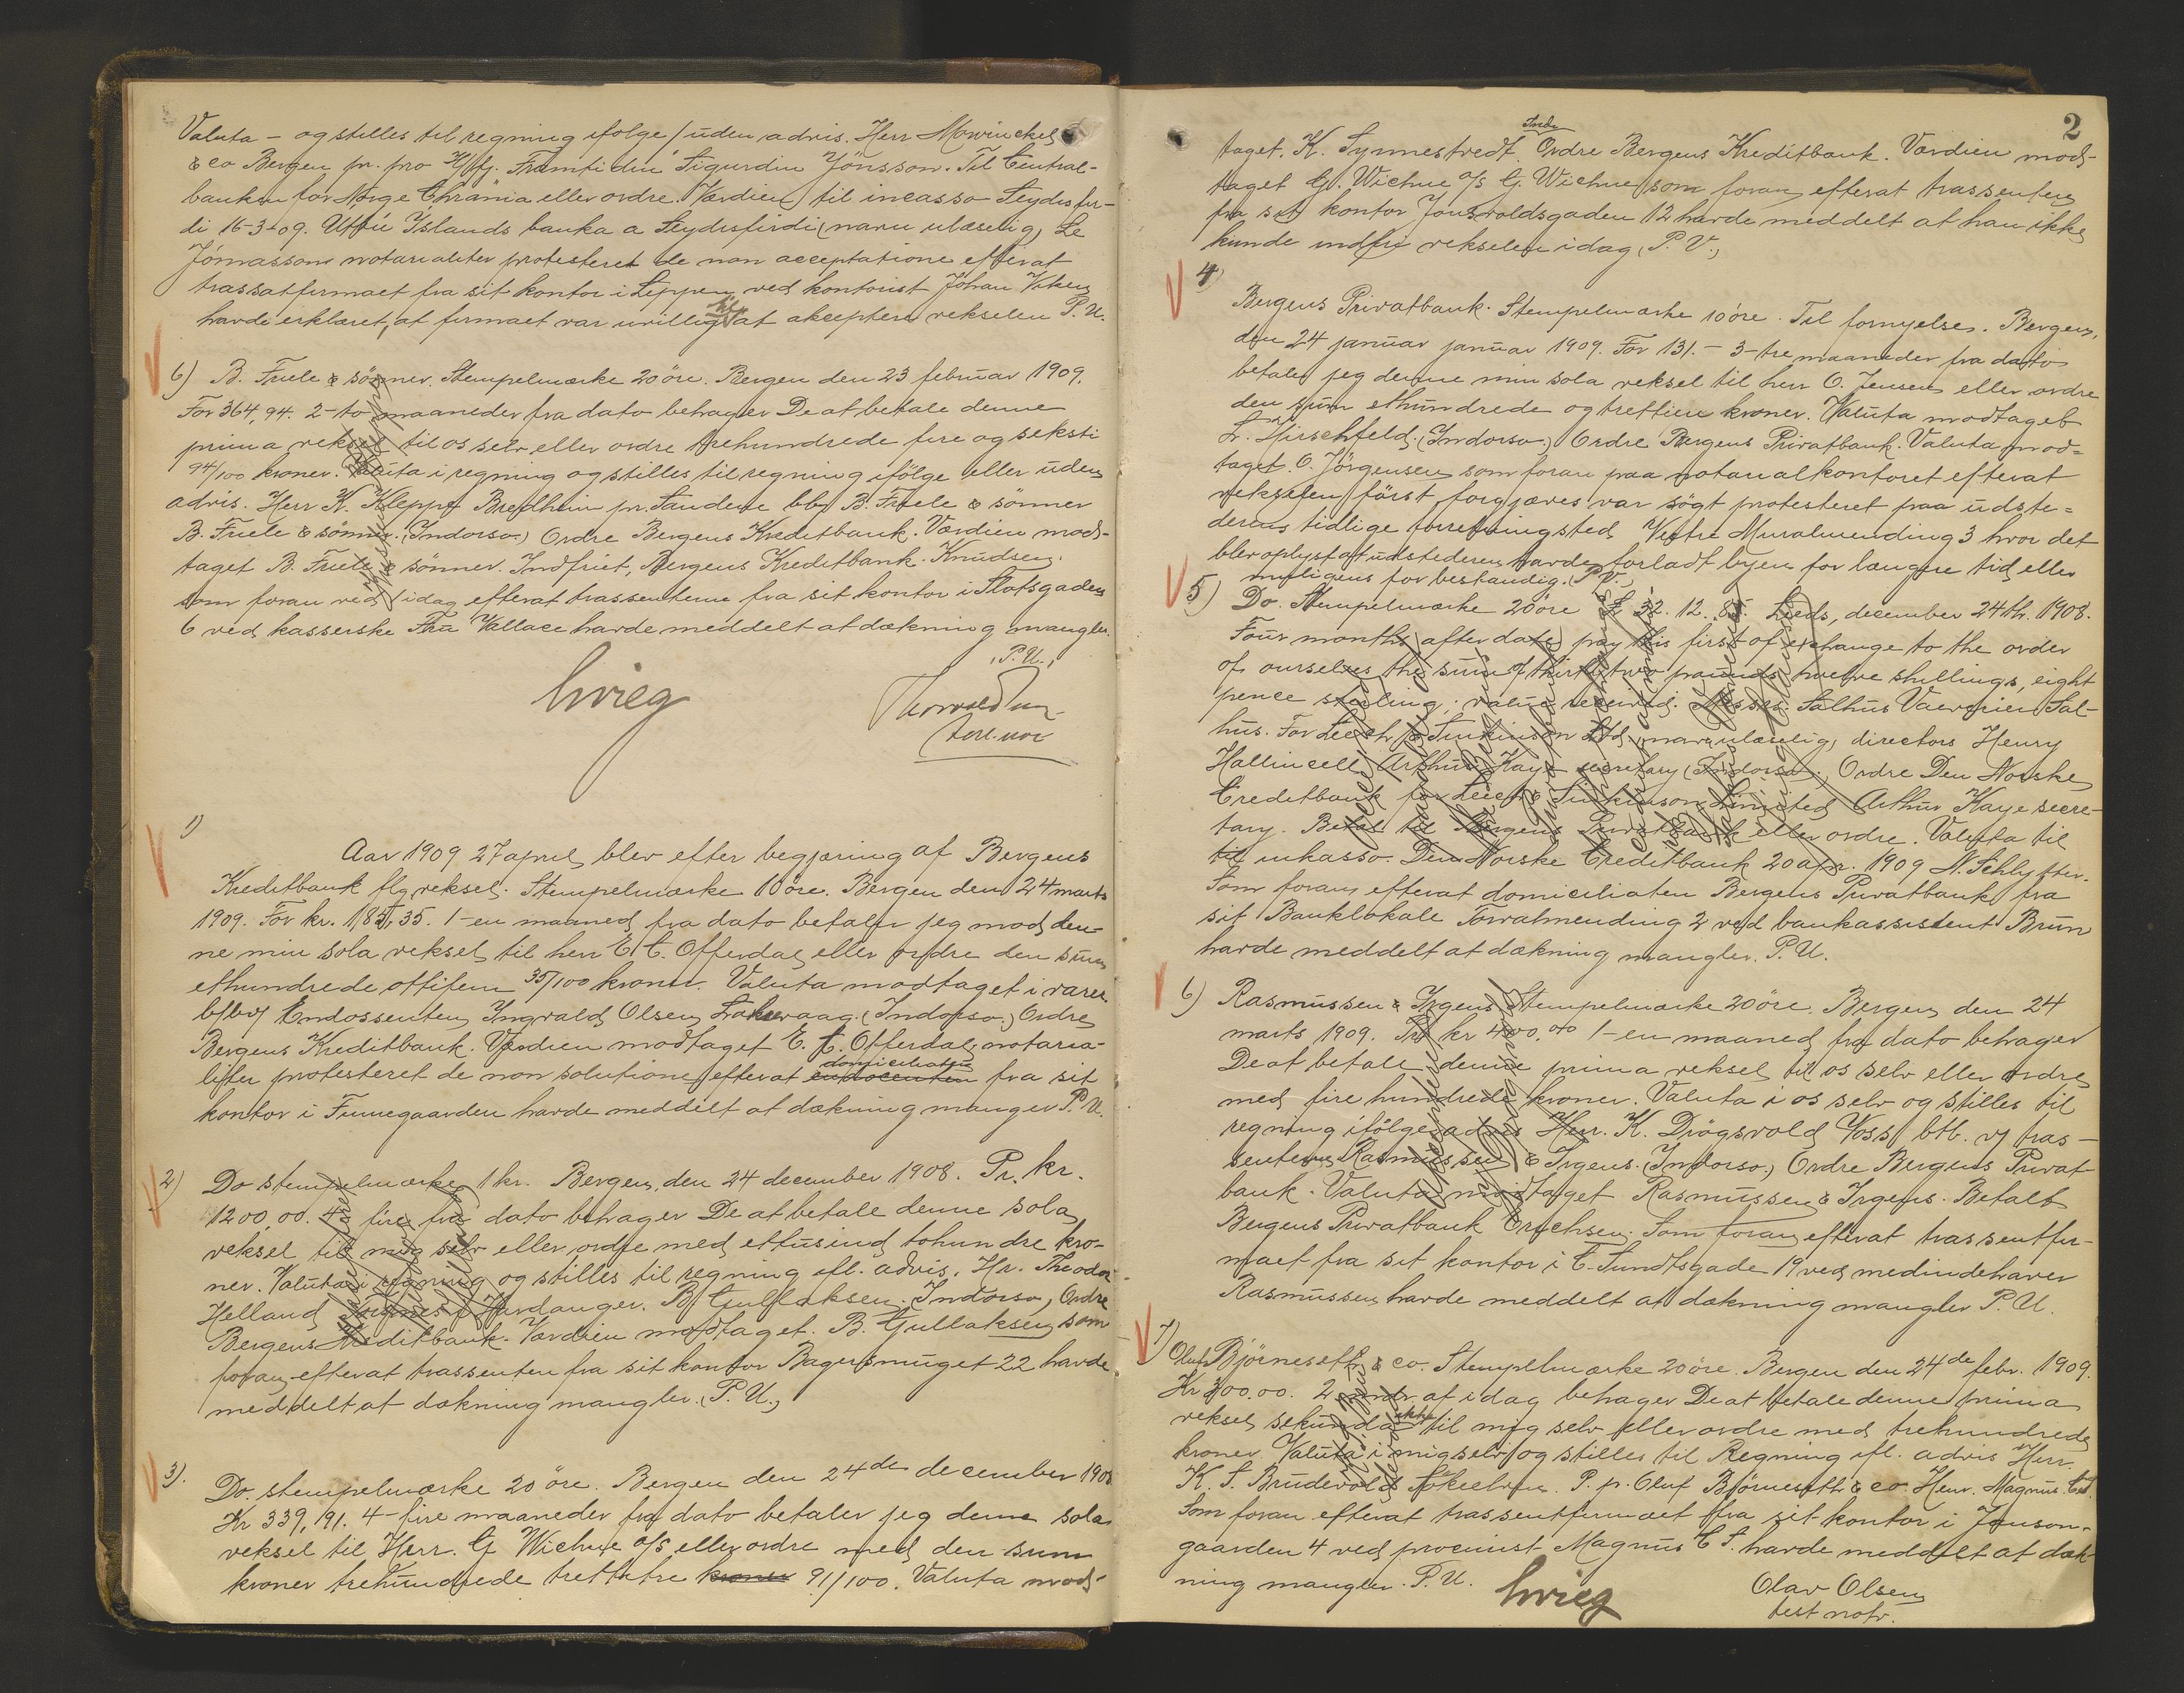 Valuta - og stilles til regning ifølge / uden advis. Herr Mowinckel
& co Bergen pr. pro H/fj. Framtidin Sigurdur Jónsson. Til Central-
banken for Norge Chrania eller ordre. Værdien til incasso Seydisfir-
di 16-3-09. Utbú Islands banka a Seydisfirdi (navn ulæselig)
Jónassons notarialiter protesteret de non acceptatione efterat
trassatfirmaet fra sit kontor i Leppen ved kontorist Johan
havde erklæret, at firmaet var uvillig til at akceptere vekselen P. U.
6) B. Friele & sönner. Stempelmærke 20 öre. Bergen den 23 februar 1909.
For 364,94. 2-to maaneder fra dato behager De at betale denne
prima veksel til os selv eller ordre trehundrede fire og seksti
94/100 kroner. Valuta i regning og stilles til regning ifölge eller uden
advis. Herr K. Kleppe Bredheim pr. Sandene B. Friele & sönner
B. Friele & sönner. (Indorso.) Ordre Bergens Kreditbank. Værdien mod-
taget B. Friele & sönner. Indfriet, Bergens Kreditbank. Knudsen.
som foran ved idag efterat trassenterne fra sit kontor i Slotsgaden
6 ved kasserske Fra Wallace havde meddelt at dækning mangler.
P. U.
Grieg
1)
Aar 1909 27 april blev efter begjæring af Bergens
Kreditbank flg veksel. Stempelmærke 10 öre. Bergen den 24 marts
1909. For kr. 185,35. 1-en maaned fra dato betaler jeg mod den-
ne min sola veksel til herr E C. Offerdal eller ordre den sum
ethundrede ottifem 35/100 kroner. Valuta modtaget i varer
Endossenten Ingvald Olsen (Indorso.) Ordre
Bergens Kreditbank. Værdien modtaget E. C. Offerdal, notaria-
liter protesteret de non solutione efterat endocenten domiciliaten fra sit
kontor i Finnegaarden havde meddelt at dækning manger P. U.
2) Do stempelmærke 1 kr. Bergen, den 24 december 1908. Pr. kr.
1200,00. 4 fire fra dato behager De at betale denne sola
veksel til mig selv eller ordre med ettusind tohundre kro-
ner. Valuta i regning og stilles til regning ifl. advis. Hr. Theodor
Helland Hardanger. B. Gullaksen. (Indorso), Ordre
Bergens Kreditbank. Værdien modtaget. B. Gullaksen som
foran efterat trassenten fra sit kontor Bagersmuget 22 havde
meddelt at dækning mangler. (P. U.,
3). Do. stempelmærke 20 öre. Bergen den 24de december 1908
Kr 339,191. 4-fire maaneder fra dato betaler jeg denne sola
veksel til Herr. G Wiehne a/s eller ordre med den sum
kroner trehundrede trettitre kroner 91/100. Valuta mod-
2
taget. K. Synnestvedt. Indo Ordre Bergens Kreditbank. Værdien mod-
taget G. Wiehne a/s G. Wiehne som foran efterat trassenten
fra sit kontor Jonsvoldsgaden 12 havde meddelt at han ikke
kunde indfri vekselen idag. P. U.,
4)
Bergens Privatbank. Stempelmærke 10 öre. Til fornyelse. Bergen,
den 24 januar januar 1909. For 131.- 3-tre maaneder fra dato
betaler jeg denne min sola veksel til herr O. Jensen eller ordre
den sum ethundrede og trettien kroner. Valuta modtaget
L. Hirschfeld. (Indorso.) Ordre Bergens Privatbank. Valuta mod-
taget. O. Jörgensen som foran paa notarialkontoret efterat
vekselen först forgjæves var sögt protesteret paa udste-
derens tidlige forretningsted Vestre Muralmending 3 hvor det
blev oplyst at udstederen havde forladt byen for længere tid eller
muligens for bestandig. P. U.
5) Do. Stempelmærke 20 öre £ 32. 12. 8. Leeds, december 24th. 1908.
Four months after date pay this first of exchange to the order
of ourselves the sum of thirtytwo pounds twelve shillings, eight
pence sterling; value received. Messrs. Salhus Væveri Sal-
hus. For Leech & Ltd. (navn ulæselig) directors Henry
Hallincell Arthur Kaye secretary (Indorso.) Ordre Den Norske
Creditbank for Leech & Limited Arthur Kaye secre-
tary. Betal til Bergens Privatbank eller ordre. Valuta til
til inkasso. Den Norske Creditbank 20 apr. 1909 N. Schlytter.
Som foran efterat domiciliaten Bergens Privatbank fra
sit Banklokale Torvalmending 2 ved bankassistent Brun
havde meddelt at dækning mangler. P. U.
6) Rasmussen & Irgens Stempelmærke 20 öre. Bergen den 24
marts 1909. Pr kr 400.00 1-en maaned fra dato behager
De at betale denne prima veksel til os selv eller ordre
med fire hundrede kroner. Valuta i os selv og stilles til
regning ifölge advis Herr. K. Drögsvold Voss btl. v/ tras-
senten Rasmussen & Irgens. (Indorso,) Ordre Bergens Privat
bank. Valuta modtaget Rasmussen & Irgens. Betalt
Bergens Privatbank Erichsen. Som foran efterat trassentfir-
maet fra sit kontor i C. Sundtsgade 19 ved medindehaver
Rasmussen havde meddelt at dækning mangler P. U.
7)
Oluf Björneseth & co. Stempelmærke 20 öre. Bergen den 24de febr. 1909.
Kr 300.00. 2 mdr. at idag behager De at betale denne prima
veksel sekunda ikke til mig selv eller ordre med trehundrede
kroner. Valuta i mig selv og stilles til Regning ifl. advis Herr.
K. S. Brudevold P. p. Oluf Björneseth & co. Henr. Magnus.
Som foran efterat trassentfirmaet fra sit kontor i Janson-
gaarden 4 ved procurist Magnus havde meddelt at dæk-
ning mangler. P. U.
Grieg
Olav Olsen
test notr.